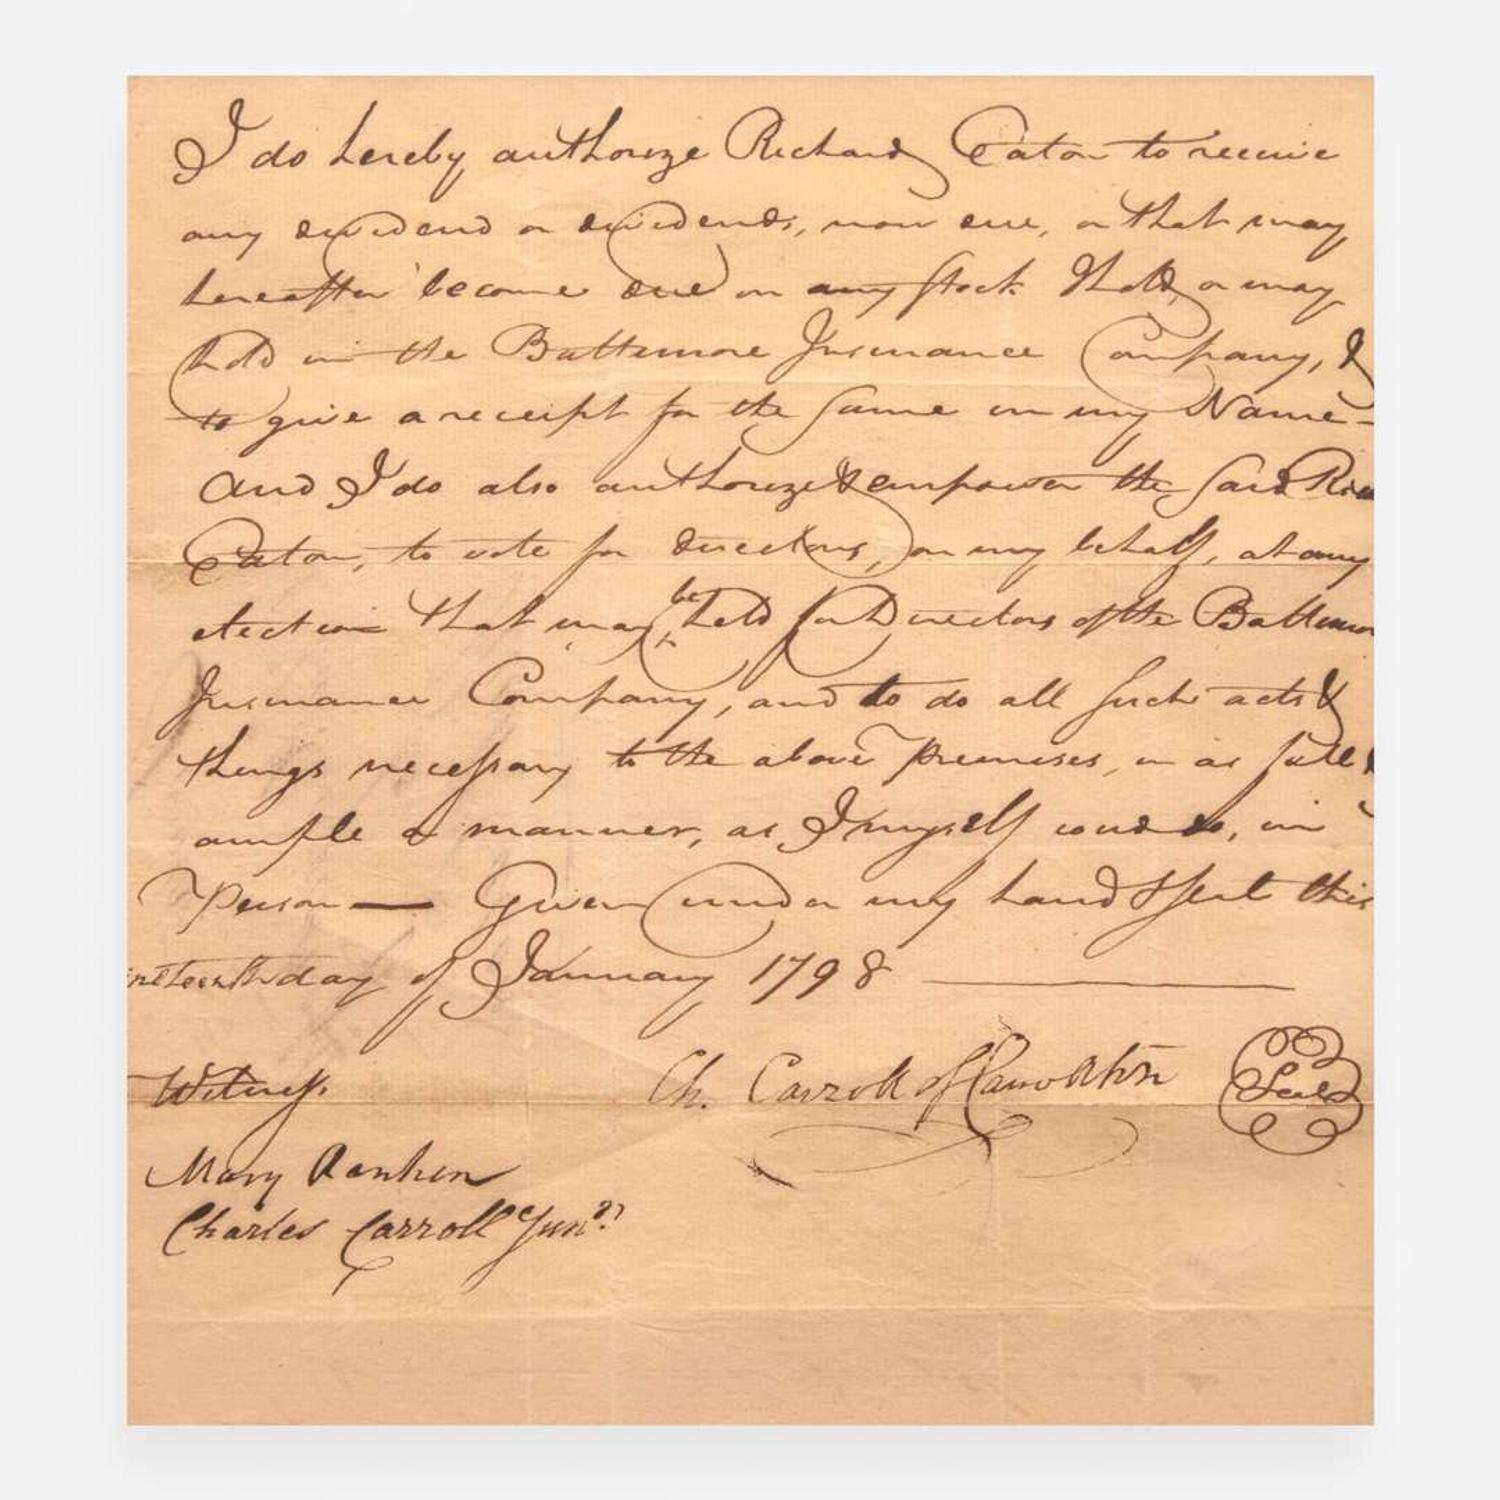 I do hereby authorize Richard Caton to receive
any dividend or dividends, now due, or that may
hereafter become due on any stock I hold, or may
hold in the Baltimore Insurance Company, &
to give a receipt for the same in my Name-
And I do also authorize & empower the said
Caton, to vote for directors, on my behalf, at any
election that may be held for Directors of the Baltimore
Insurance Company, and to do all such acts &
things necessary to the above premises, in as full &
ample a manner, as I myself coud do, in
Person — Given under my hand & seal this
ineteenth day of January 1798
Witness
Ch. Carroll of Carrollton
Seal
Mary Rankin
Charles Carroll Junr.